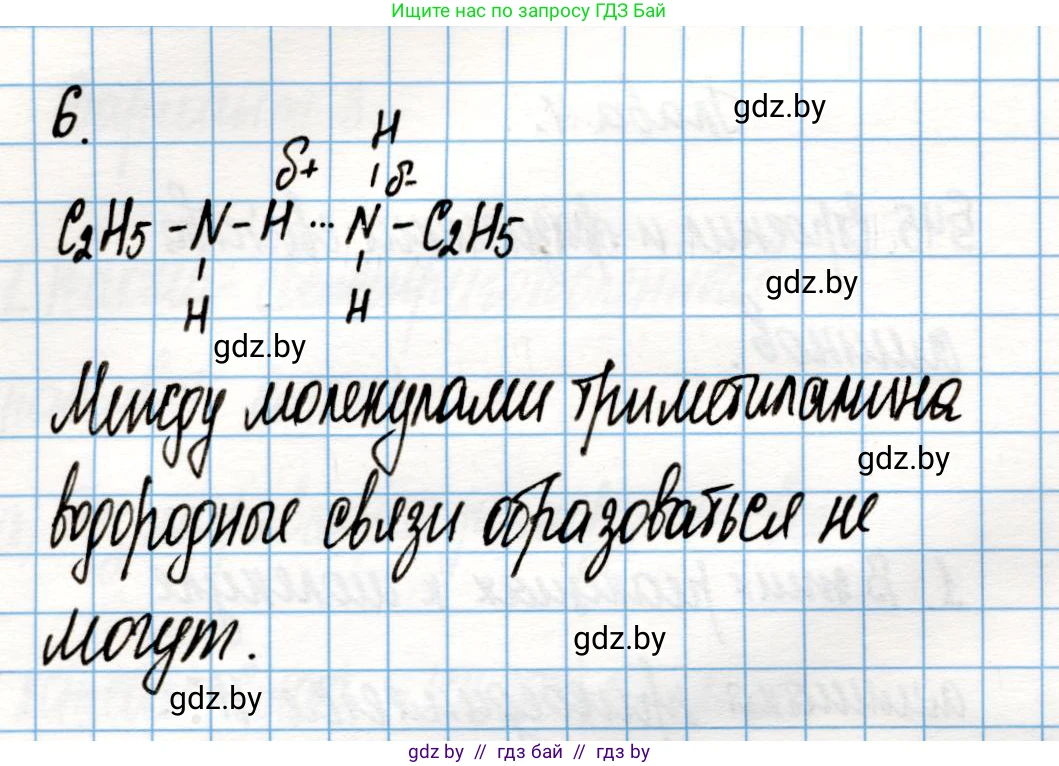 Ищите нас по запросу ГДЗ Бай
6.
gdz.by
H
δ+ | δ-
C2H5 - N - H ... N - C2H5
| |
gdz.by
H H
gdz.by
Между молекулами триметиламина
gdz.by
водородные связи образоваться не
gdz.by
могут.
gdz.by
gdz by // гдз бай // gdz by